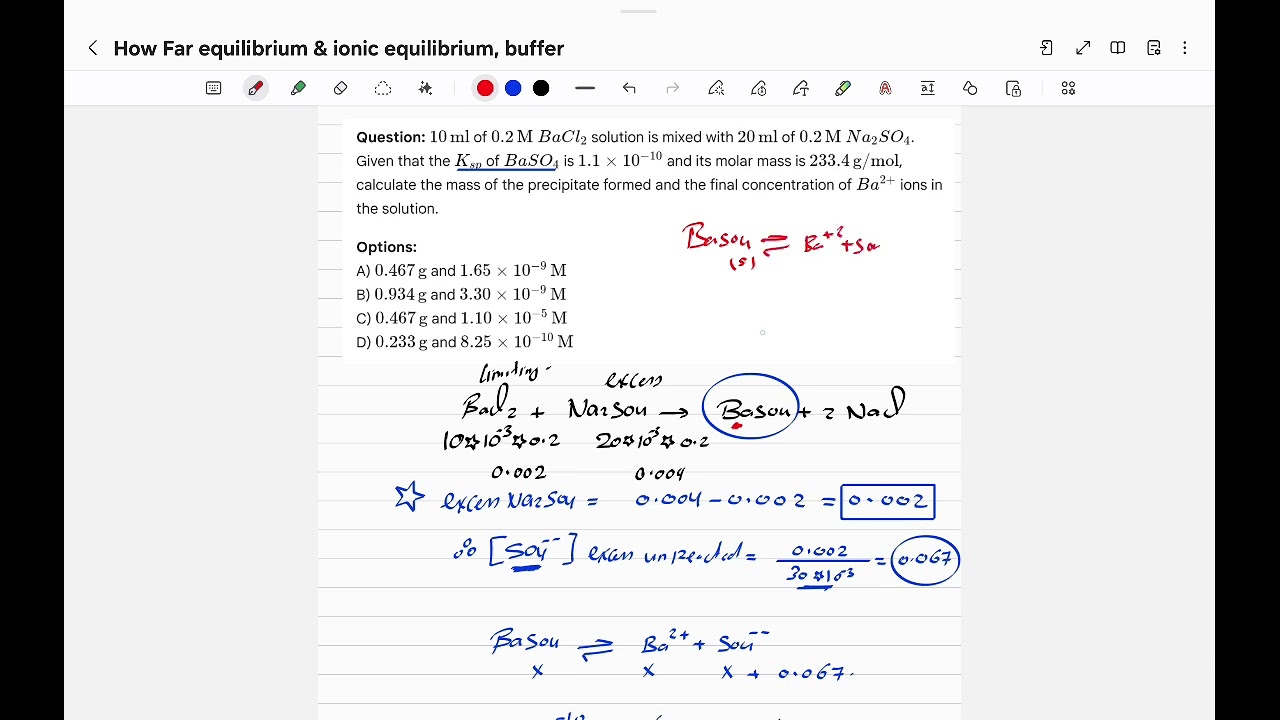 How Far equilibrium & ionic equilibrium, buffer
Question: 10 ml of 0.2 M BaCl₂ solution is mixed with 20 ml of 0.2 M Na₂SO₄.
Given that the Kₛₚ of BaSO₄ is 1.1 × 10⁻¹⁰ and its molar mass is 233.4 g/mol,
calculate the mass of the precipitate formed and the final concentration of Ba²⁺ ions in
the solution.
Options:
A) 0.467 g and 1.65 × 10⁻⁹ M
B) 0.934 g and 3.30 × 10⁻⁹ M
C) 0.467 g and 1.10 × 10⁻⁵ M
D) 0.233 g and 8.25 × 10⁻¹⁰ M
BaSO4 ⇌ Ba⁺² + So
(s)
limiting excess
BaCl2 + Na2SO4 → BaSO4 + 2 NaCl
10*10⁻³*0.2 20*10⁻³*0.2
0.002 0.004
☆ excess Na2SO4 = 0.004 - 0.002 = 0.002
∴ [SO4⁻⁻] excess unreacted = 0.002 / 30*10⁻³ = 0.067
BaSO4 ⇌ Ba²⁺ + SO4⁻⁻
x x x + 0.067